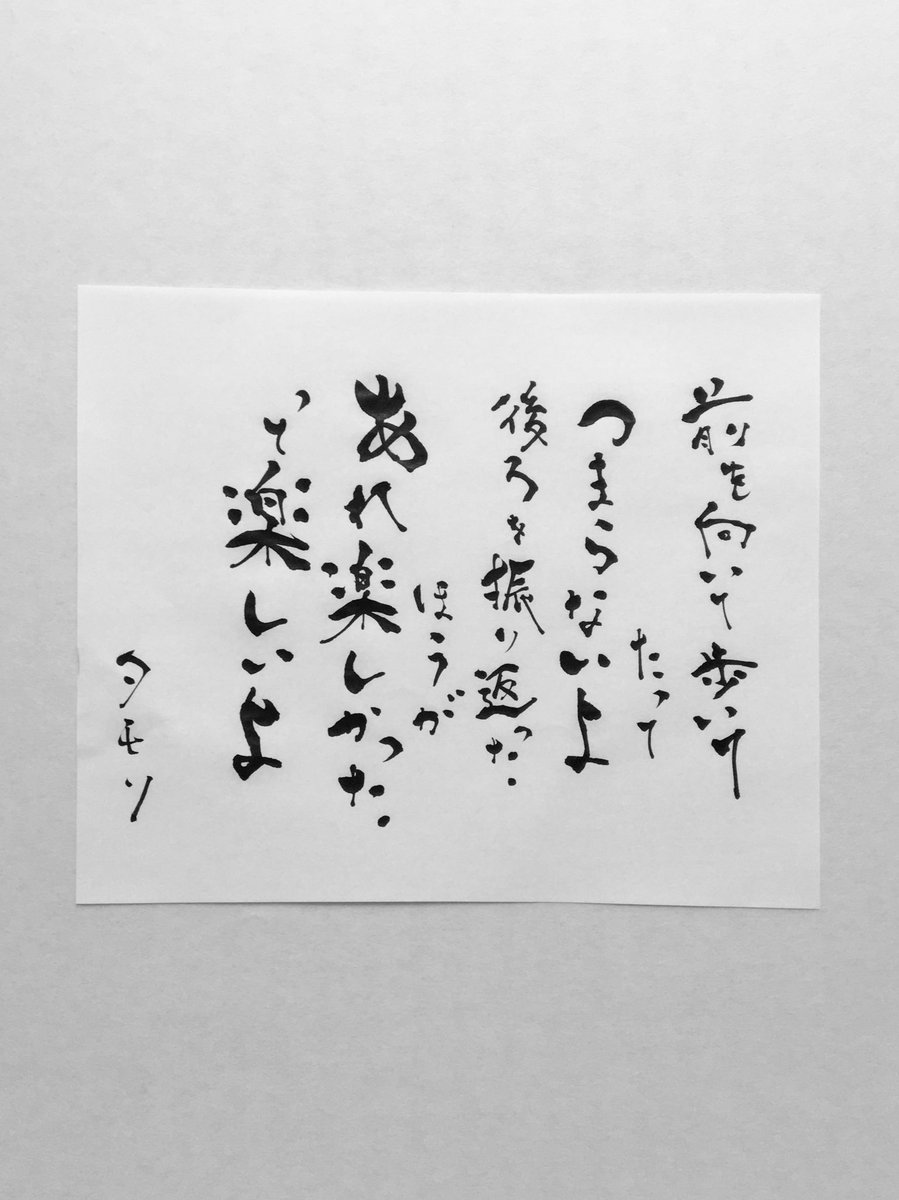 前を向いて歩いて
たって
つまらないよ
後ろを振り返った
ほうが
あれ楽しかった
って楽しいよ
タモリ